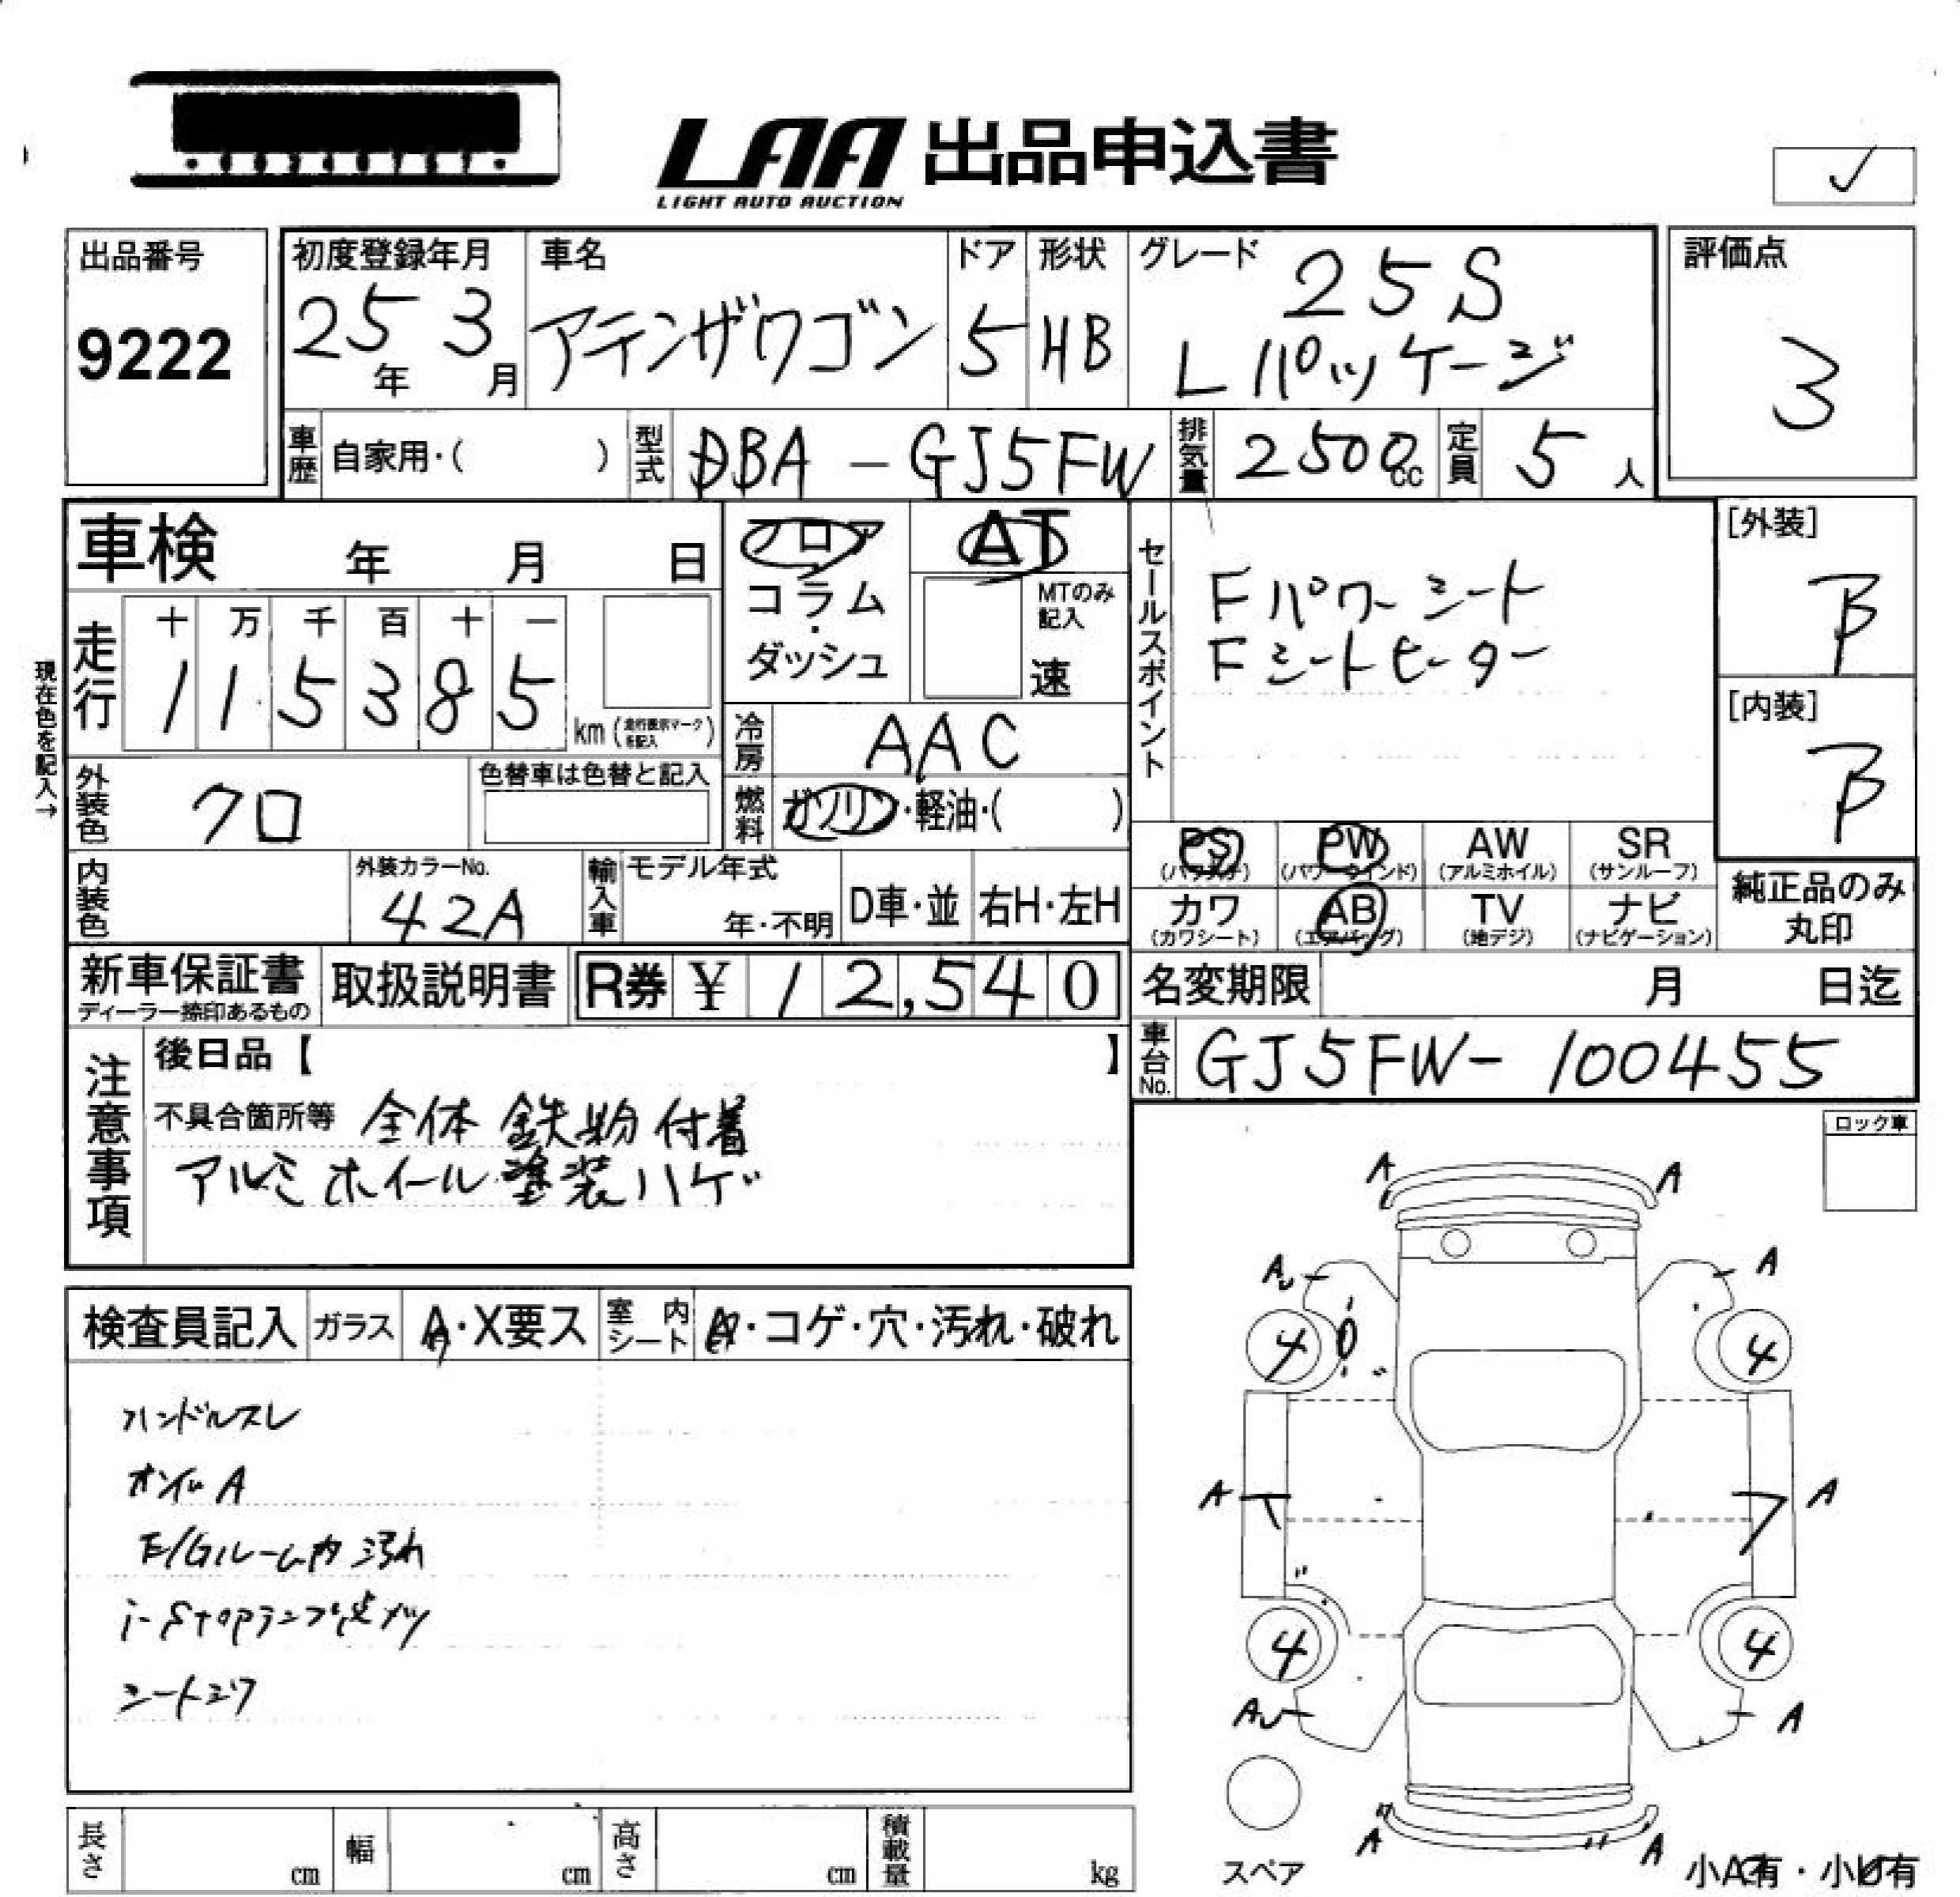 LAA 出品申込書
LIGHT AUTO AUCTION
出品番号
9222
初度登録年月
25年 3月
車名
アテンザワゴン
ドア
5
形状
HB
グレード
25S
Lパッケージ
評価点
3
車歴 自家用・( )
型式 DBA-GJ5FW
排気量 2500cc
定員 5人
車検 年 月 日
フロア
コラム
・
ダッシュ
AT
MTのみ記入
速
現在色を記入→
走行
十 万 千 百 十 一
1 1 5 3 8 5
km (走行表示マークを記入)
冷房 AAC
外装色 クロ
色替車は色替と記入
燃料 ガソリン・軽油・( )
内装色
外装カラーNo.
42A
輸入車
モデル年式
年・不明
D車・並
右H・左H
セールスポイント
Fパワーシート
Fシートヒーター
[外装]
B
[内装]
B
PS (パワステ)
PW (パワーウインド)
AW (アルミホイル)
SR (サンルーフ)
カワ (カワシート)
AB (エアバッグ)
TV (地デジ)
ナビ (ナビゲーション)
純正品のみ
丸印
新車保証書
ディーラー捺印あるもの
取扱説明書
R券 ¥ 12,540
名変期限 月 日迄
車台No. GJ5FW-100455
注意事項
後日品【 】
不具合箇所等 全体 鉄粉付着
アルミホイール塗装ハゲ
ロック車
検査員記入
ガラス A・X要ス
室内シート ・コゲ・穴・汚れ・破れ
ハンドルスレ
オイルA
E/Gルーム内汚れ
i-stopランプ点メツ
シートシワ
A A
A A
4 4
A A
4 4
A A
A A
スペア
小A有・小U有
長さ cm
幅 cm
高さ cm
積載量 kg